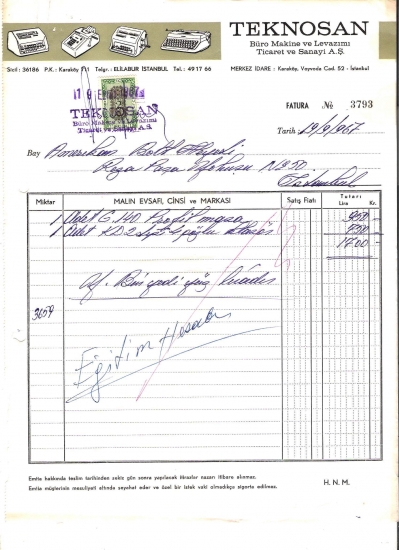 TEKNOSAN
Büro Makine ve Levazımı
Ticaret ve Sanayi A.Ş.
Sicil : 36186 P.K.: Karaköy Telgr.: ELİLABUR İSTANBUL Tel.: 49 17 66
MERKEZ İDARE : Karaköy, Voyvoda Cad. 52 - İstanbul
TEKNOSAN
Büro Makine ve Levazımı
Ticaret ve Sanayi A.Ş.
FATURA № 3793
Tarih : 19/9/967
Bay Amerikan
Rıza Paşa
İstanbul
Miktar MALIN EVSAFI, CİNSİ ve MARKASI Satış Fiatı Tutarı
Lira Kr.
1 Adet G.140 950
1 Adet KD2 750
1700
Yf. Bin yedi yüz liradır
3659
Eğitim Hesabı
Emtia hakkında teslim tarihinden sekiz gün sonra yapılacak itirazlar nazarı itibare alınmaz.
Emtia müşterinin mesuliyeti altında seyahat eder ve özel bir istek vaki olmadıkça sigorta edilmez.
H. N. M.